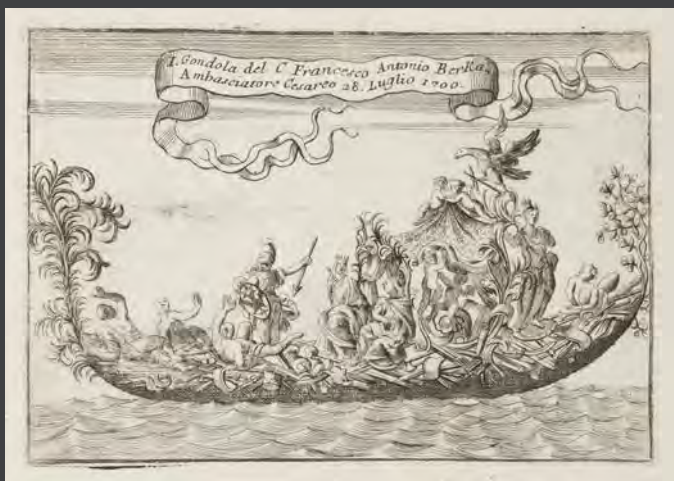 I. Gondola del C Francesco Antonio Berka,
Ambasciatore Cesareo 28. Luglio 1700.